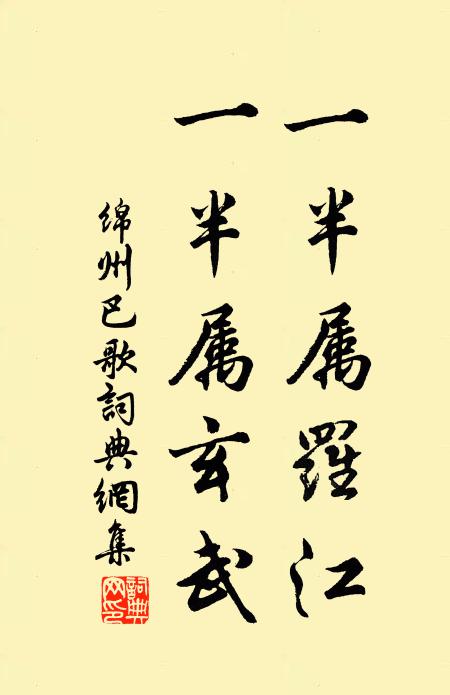 一半属羅江
一半属玄武
绵州巴歌詞典網集
詞典網印